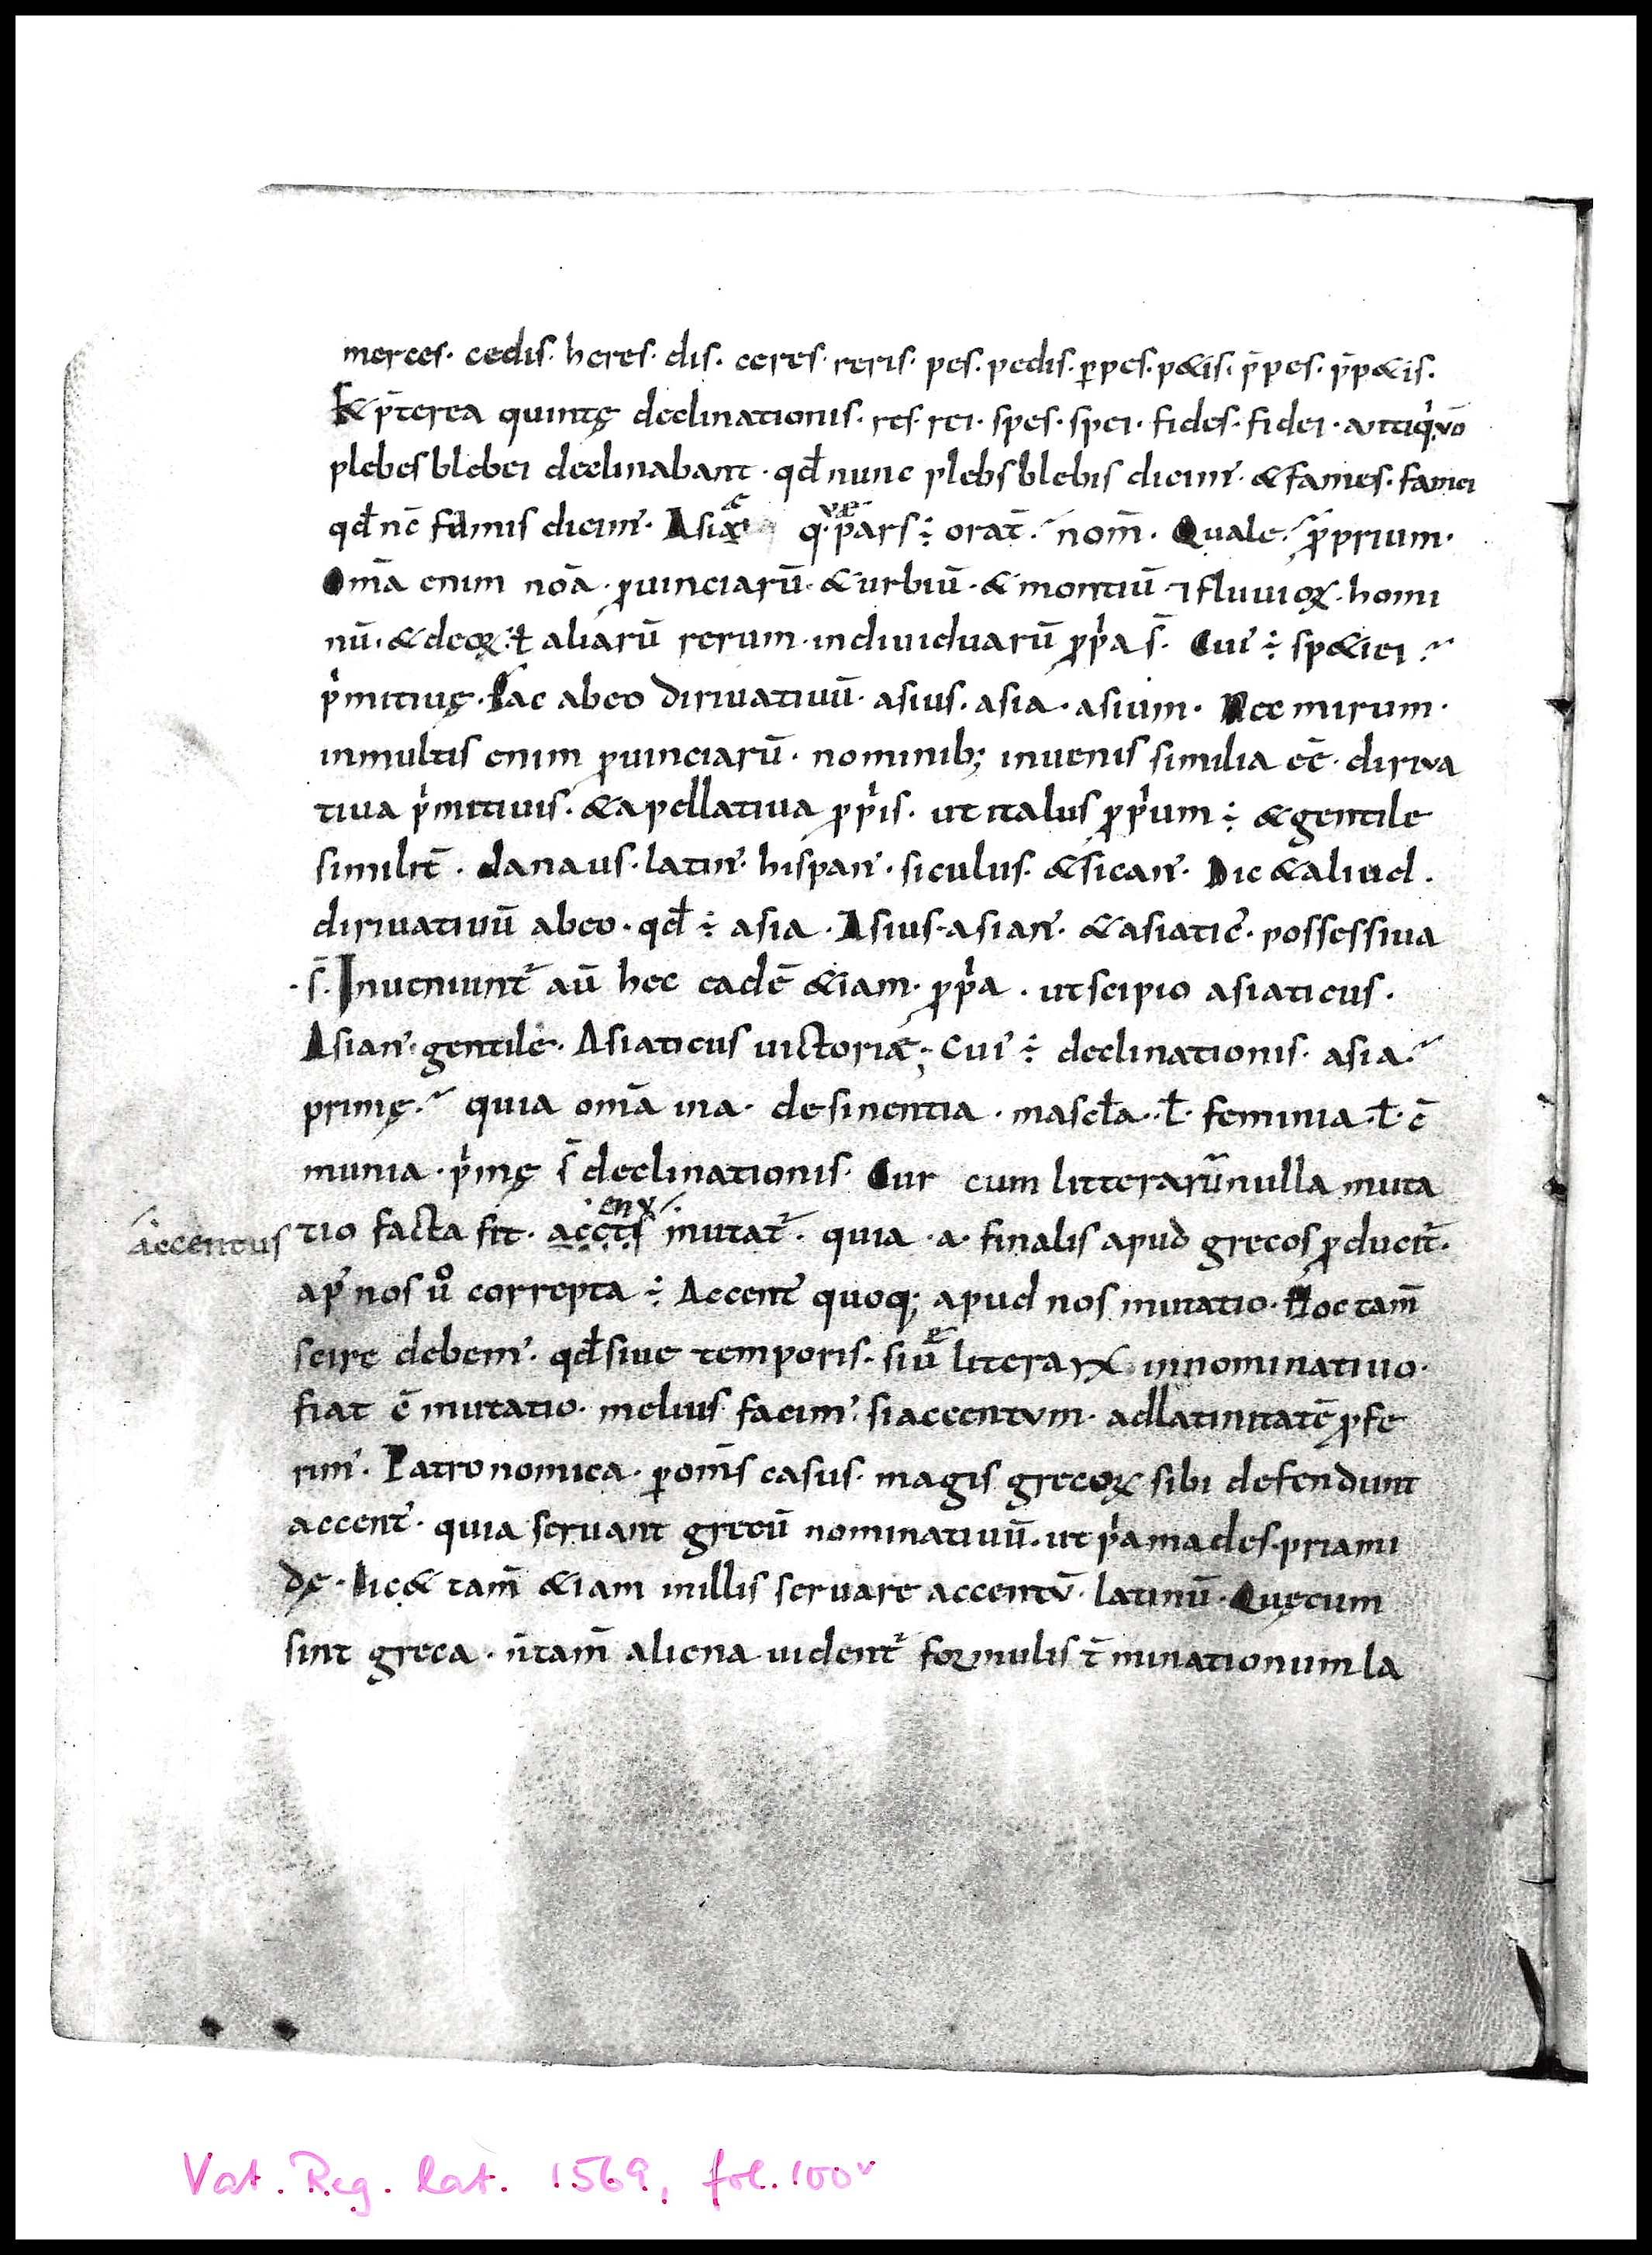 merces. cedis. heres. dis. ceres. reris. pes. pedis. p̄pes. p&is. p̄pes. p̄p&is.
& p̄terea quintę declinationis. res. rei. spes. spei. fides. fidei. antiq'. vō
plebes blebei declinabant. qđ nunc plebs blebis dicim'. & fames. famei
qđ nc̄ famis dicim'. Asia q. pars ÷ orat̄. nom̄. Quale. p̄prium.
Om̄a enim nōa. ꝓuinciarū. & urbiū. & montiū. ⁊ fluuioꝝ. homi
nū. & deoꝝ. ł aliarū rerum. indiuiduarū ꝓp'a s̄. Cui' ÷ sp&iei.
p'mitiuę. Fac abeo diriuatiuū. asius. asia. asium. Nec mirum.
inmultis enim ꝓuinciarū. nominib; inuenis similia eē. diriua
tiua p'mitiuis. & apellatiua ꝓp'is. ut italus ꝓp'um ÷ & gentile
similit̄. danaus. latin'. hispan'. siculus. & sican'. Dic & aliud.
diriuatiuū abeo. qđ ÷ asia. Asius. asian'. & asiatic'. possessiua
s̄. Inueniunt̄ aū hec eadē &iam. ꝓp'a. ut scipio asiaticus.
Asian'. gentile. Asiaticus uictoriæ; Cui' ÷ declinationis. asia.
primę. quia om̄a ina. desinentia. mascła. ł. feminia. ł. c̄
munia. p'mę s̄ declinationis. Cur cum litterarū nulla muta
enx
accentus tio facta sit. acctis mutat̄. quia .a. finalis apud grecos ꝓducit̄.
ap' nos ů correpta ÷ Accent' quoq; apud nos mutatio. Hoc tam̄
scire debem'. qđ siue temporis. siū literarꝝ innominatiuo.
fiat ē mutatio. melius facim'. si accentum. ad latinitatē ꝓfe
rim'. Patronomica. ꝑ om̄s casus. magis grecoꝝ sibi defendunt
accent'. quia seruant grecū nominatiuū. ut p'amades. priami
dę. Lic& tam̄ &iam inillis seruare accentū. latinū. Quęcum
sint greca. n̄ tam̄ aliena uident̄ formulis t̄minationum la
Vat. Reg. lat. 1569, fol. 100v